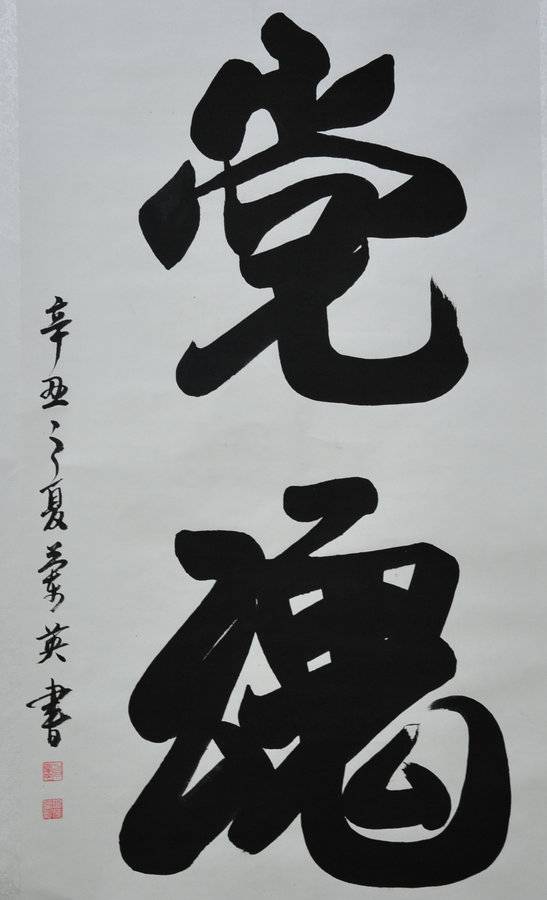 党魂
辛丑之夏兰英書